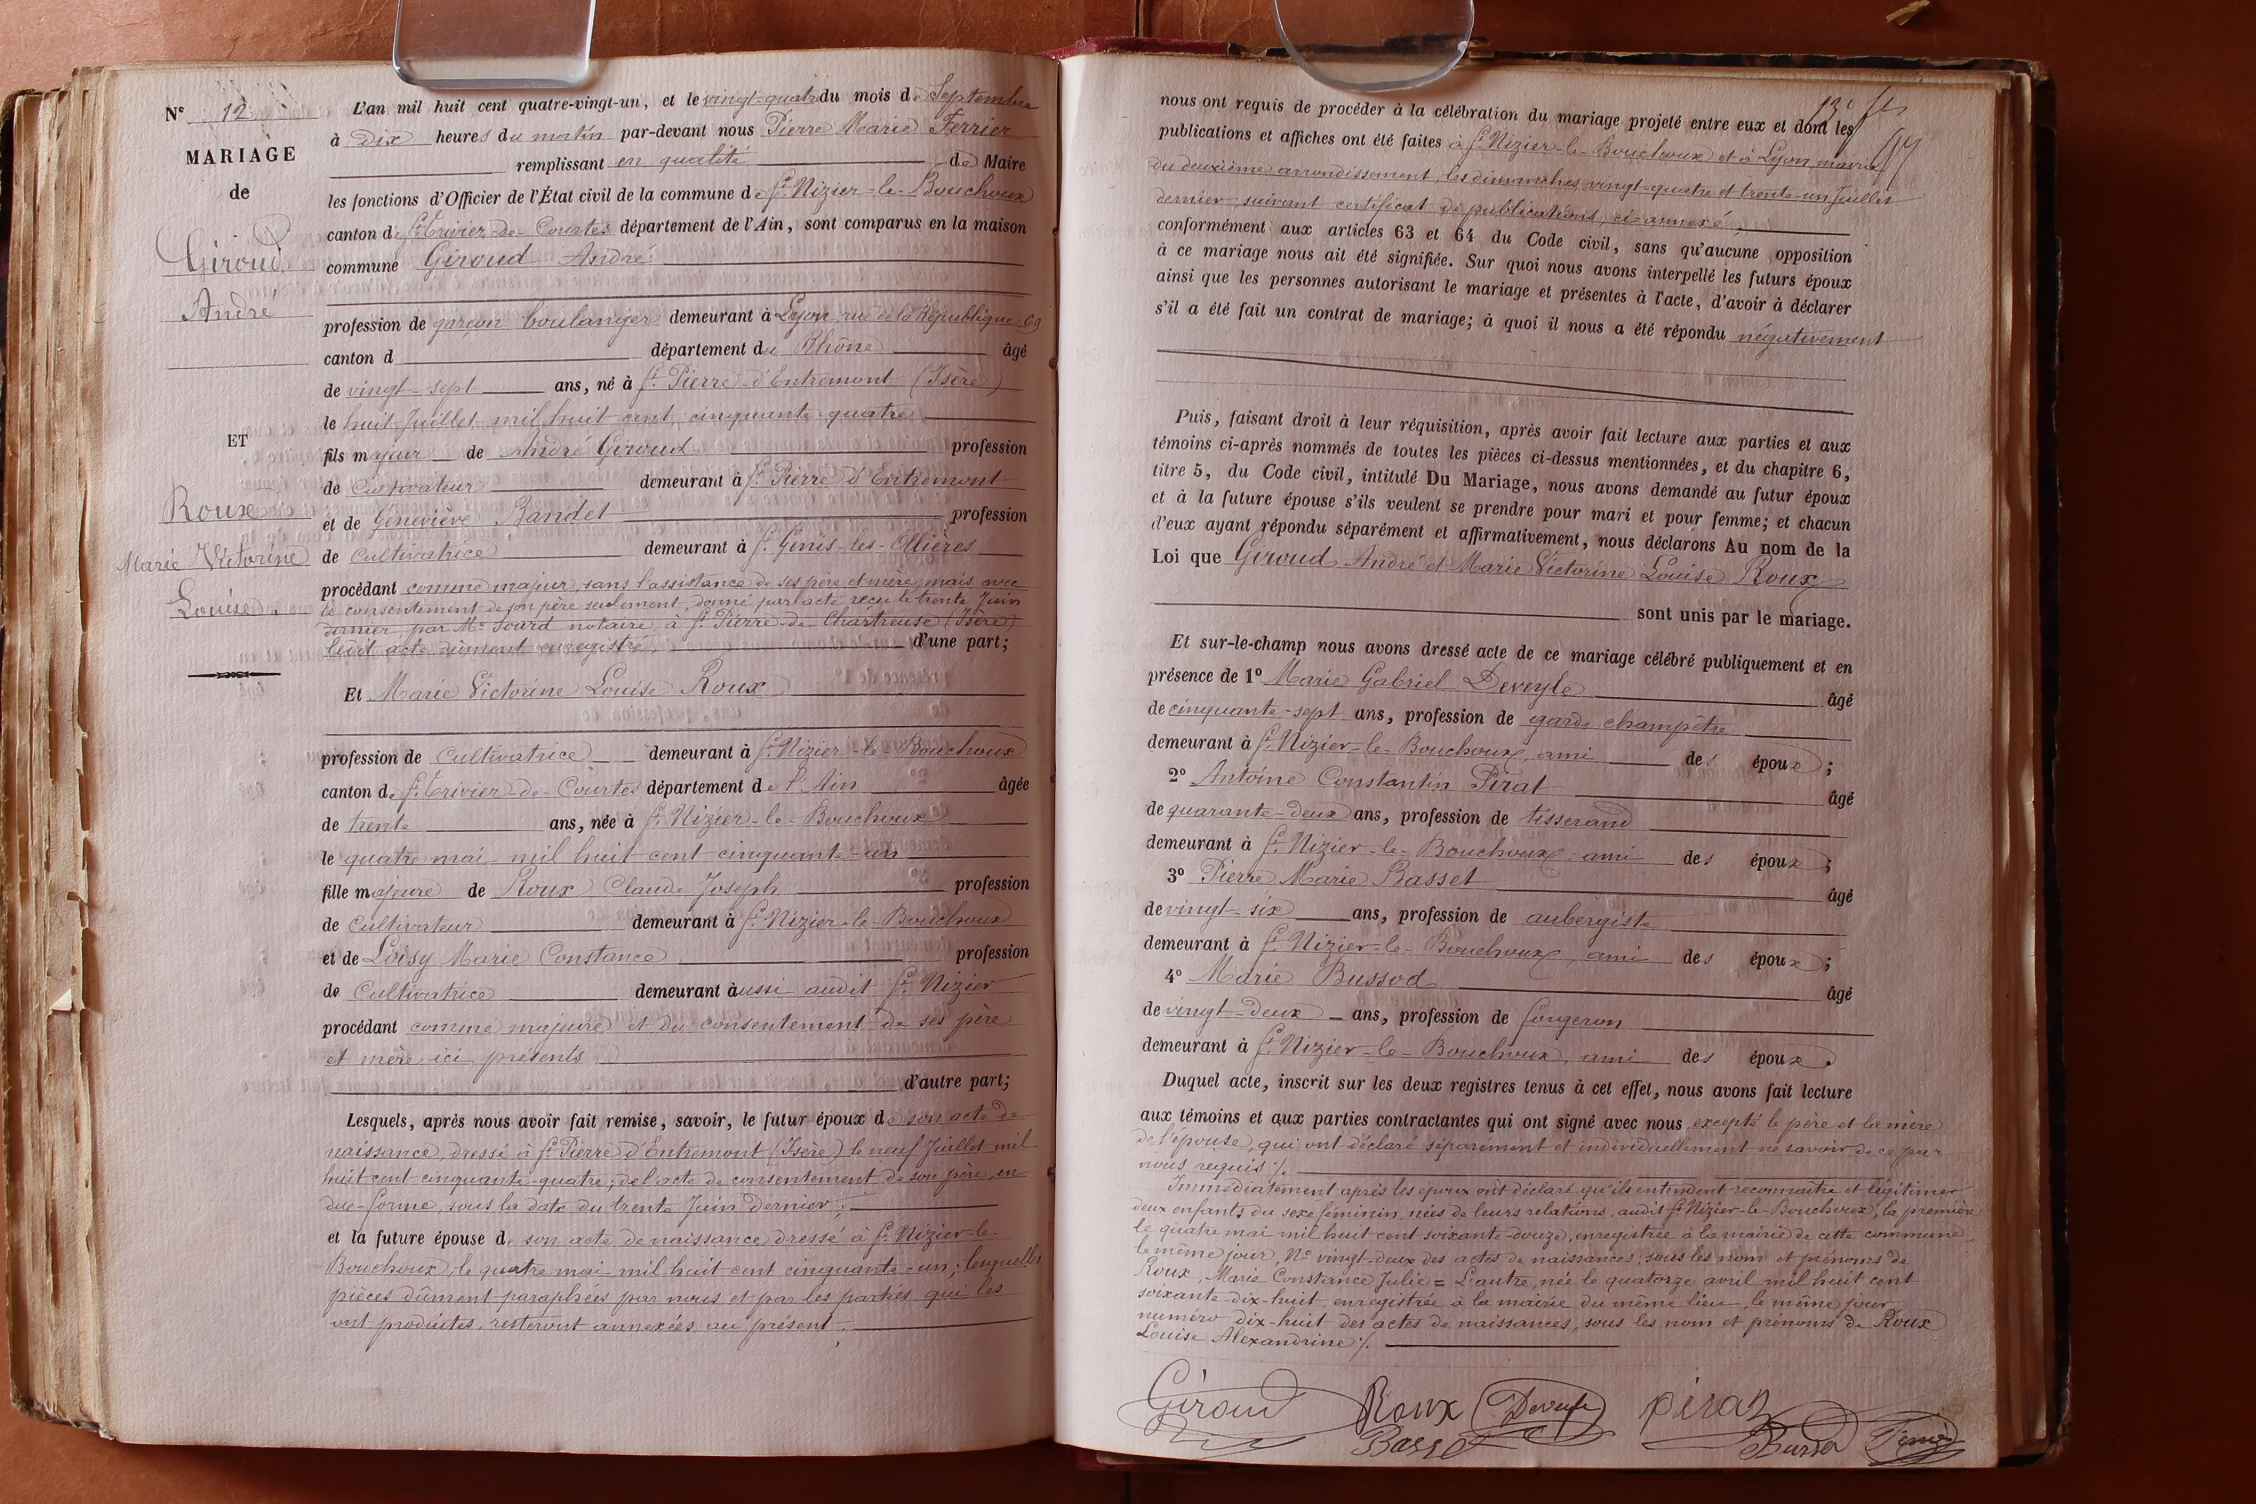 N° 12
MARIAGE
de
Giroud
André
ET
Roux
Marie Victorine
Louise
L'an mil huit cent quatre-vingt-un, et le vingt-quatre du mois de Septembre
à dix heures du matin par-devant nous Pierre Marie Ferrier
remplissant en qualité de Maire
les fonctions d'Officier de l'État civil de la commune de St Nizier-le-Bouchoux
canton de St Trivier-de-Courtes département de l'Ain, sont comparus en la maison
commune Giroud André
profession de garçon boulanger demeurant à Lyon, rue de la République 69
canton d département du Rhône âgé
de vingt-sept ans, né à St Pierre d'Entremont (Isère)
le huit Juillet mil huit cent cinquante-quatre
fils majeur de André Giroud profession
de cultivateur demeurant à St Pierre d'Entremont
et de Geneviève Bandet profession
de cultivatrice demeurant à St Genis-les-Ollières
procédant comme majeur, sans l'assistance de ses père et mère, mais avec
le consentement de son père seulement, donné par acte reçu le trente Juin
dernier, par Me Sourd notaire, à St Pierre-de-Chartreuse (Isère)
ledit acte dûment enregistré, d'une part;
Et Marie Victorine Louise Roux
profession de cultivatrice demeurant à St Nizier-le-Bouchoux
canton de St Trivier-de-Courtes département de l'Ain âgée
de trente ans, née à St Nizier-le-Bouchoux
le quatre mai mil huit cent cinquante-un
fille majeure de Roux Claude Joseph profession
de cultivateur demeurant à St Nizier-le-Bouchoux
et de Loisy Marie Constance profession
de cultivatrice demeurant aussi audit St Nizier
procédant comme majeure et du consentement de ses père
et mère ici présents
d'autre part;
Lesquels, après nous avoir fait remise, savoir, le futur époux de son acte de
naissance, dressé à St Pierre d'Entremont (Isère) le neuf Juillet mil
huit cent cinquante-quatre; de l'acte de consentement de son père, en
due-forme, sous la date du trente Juin dernier;
et la future épouse de son acte de naissance dressé à St Nizier-le-
Bouchoux, le quatre mai mil huit cent cinquante-un; lesquelles
pièces dûment paraphées par nous et par les parties qui les
ont produites, resteront annexées au présent;
13e
nous ont requis de procéder à la célébration du mariage projeté entre eux et dont les
publications et affiches ont été faites à St Nizier-le-Bouchoux et à Lyon mairie
du deuxième arrondissement, les dimanches vingt-quatre et trente-un Juillet
dernier, suivant certificat de publications, ci-annexé;
conformément aux articles 63 et 64 du Code civil, sans qu'aucune opposition
à ce mariage nous ait été signifiée. Sur quoi nous avons interpellé les futurs époux
ainsi que les personnes autorisant le mariage et présentes à l'acte, d'avoir à déclarer
s'il a été fait un contrat de mariage; à quoi il nous a été répondu négativement
Puis, faisant droit à leur réquisition, après avoir fait lecture aux parties et aux
témoins ci-après nommés de toutes les pièces ci-dessus mentionnées, et du chapitre 6,
titre 5, du Code civil, intitulé Du Mariage, nous avons demandé au futur époux
et à la future épouse s'ils veulent se prendre pour mari et pour femme; et chacun
d'eux ayant répondu séparément et affirmativement, nous déclarons Au nom de la
Loi que Giroud André et Marie Victorine Louise Roux
sont unis par le mariage.
Et sur-le-champ nous avons dressé acte de ce mariage célébré publiquement et en
présence de 1° Marie Gabriel Deveyle âgé
de cinquante-sept ans, profession de garde champêtre
demeurant à St Nizier-le-Bouchoux, ami des époux;
2° Antoine Constantin Pirat âgé
de quarante-deux ans, profession de tisserand
demeurant à St Nizier-le-Bouchoux, ami des époux;
3° Pierre Marie Basset âgé
de vingt-six ans, profession de aubergiste
demeurant à St Nizier-le-Bouchoux, ami des époux;
4° Marie Bussod âgé
de vingt-deux ans, profession de forgeron
demeurant à St Nizier-le-Bouchoux, ami des époux.
Duquel acte, inscrit sur les deux registres tenus à cet effet, nous avons fait lecture
aux témoins et aux parties contractantes qui ont signé avec nous excepté le père et la mère
de l'épouse, qui ont déclaré séparément et individuellement ne savoir de ce par
nous requis ./.
Immédiatement après les époux ont déclaré qu'ils entendent reconnaître et légitimer
deux enfants du sexe féminin, nées de leurs relations, audit St Nizier-le-Bouchoux, la première
le quatre mai mil huit cent soixante-douze, enregistrée à la mairie de cette commune
le même jour, No vingt-deux des actes de naissances, sous les nom et prénoms de
Roux, Marie Constance Julie = L'autre, née le quatorze avril mil huit cent
soixante-dix-huit, enregistrée à la mairie du même lieu, le même jour
numéro dix-huit des actes de naissances, sous les nom et prénoms de Roux
Louise Alexandrine ./.
Giroud Roux Deveyle Pirat
Basset Bussod Ferrier